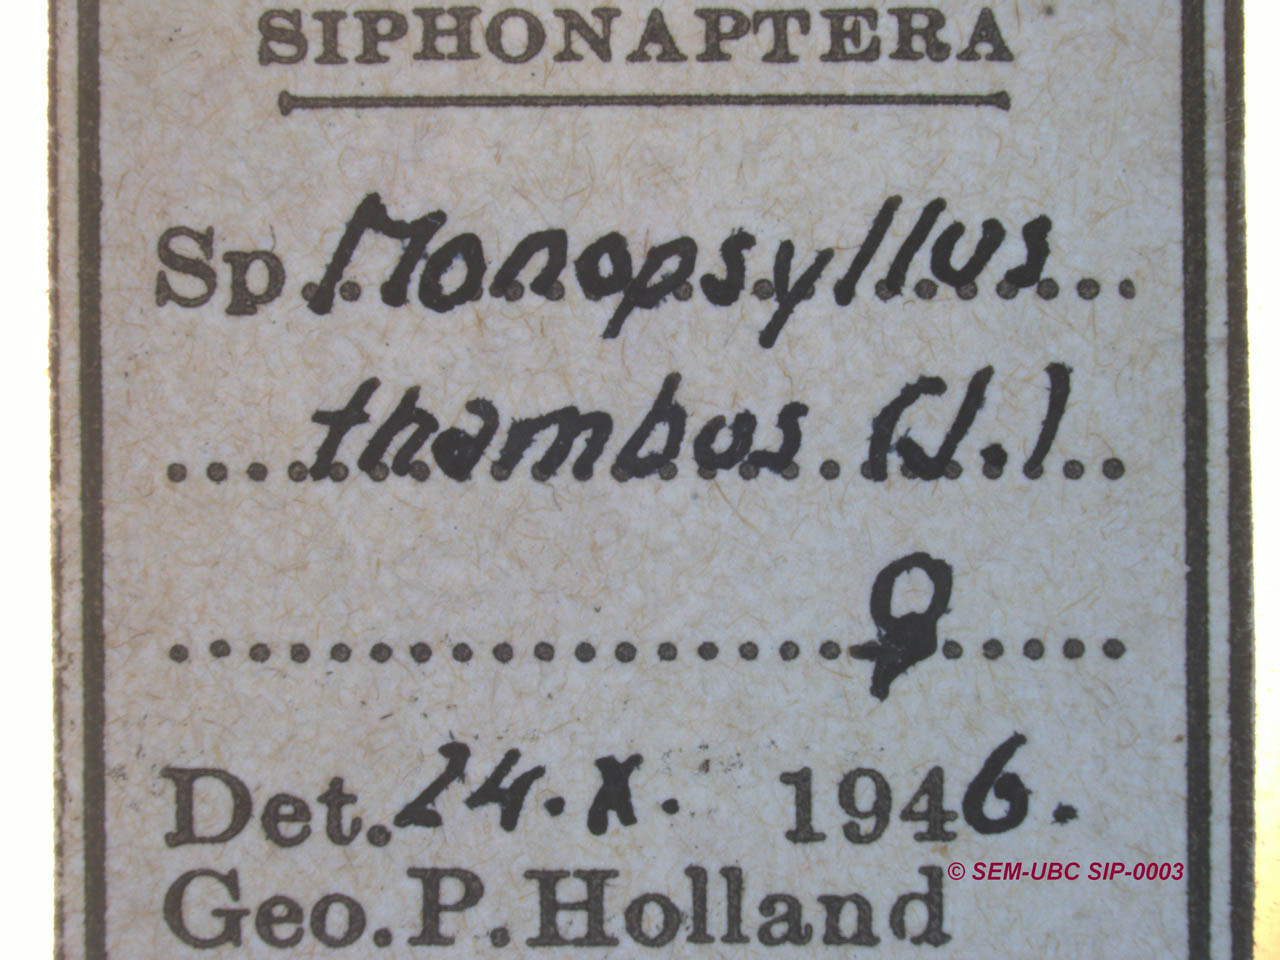 SIPHONAPTERA
Sp. Monopsyllus
thambus
♀
Det. 24.X. 1946.
© SEM-UBC SIP-0003
Geo. P. Holland